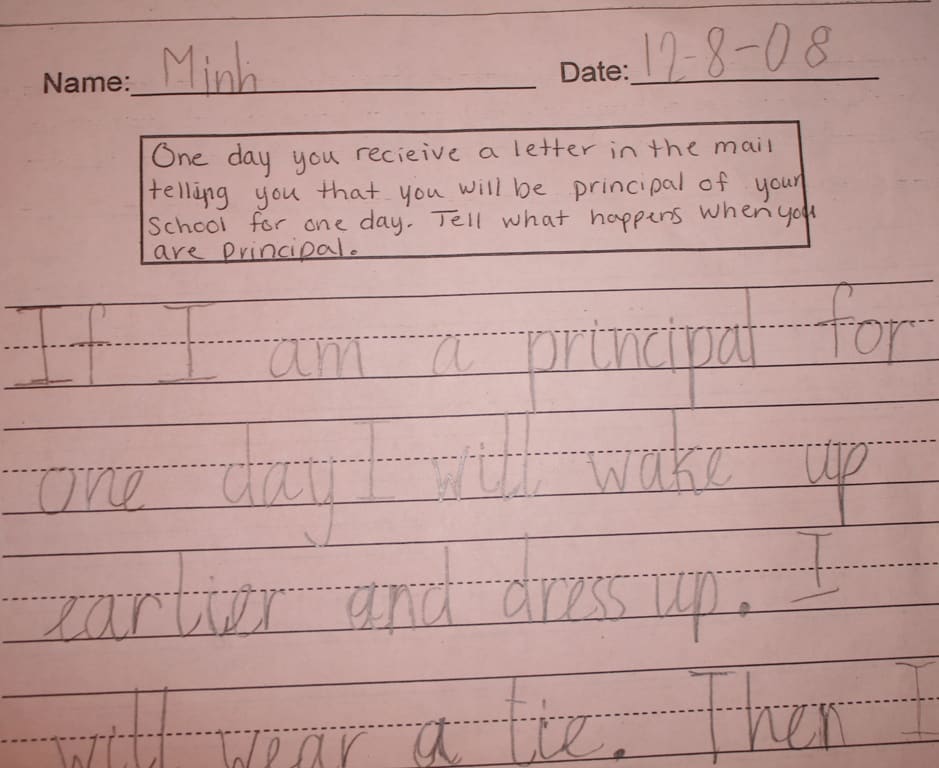 Name: Minh Date: 12-8-08
One day you recieive a letter in the mail
telling you that you will be principal of your
School for one day. Tell what happens when you
are principal.
If I am a principal for
one day I will wake up
earlier and dress up. I
will wear a tie. Then I